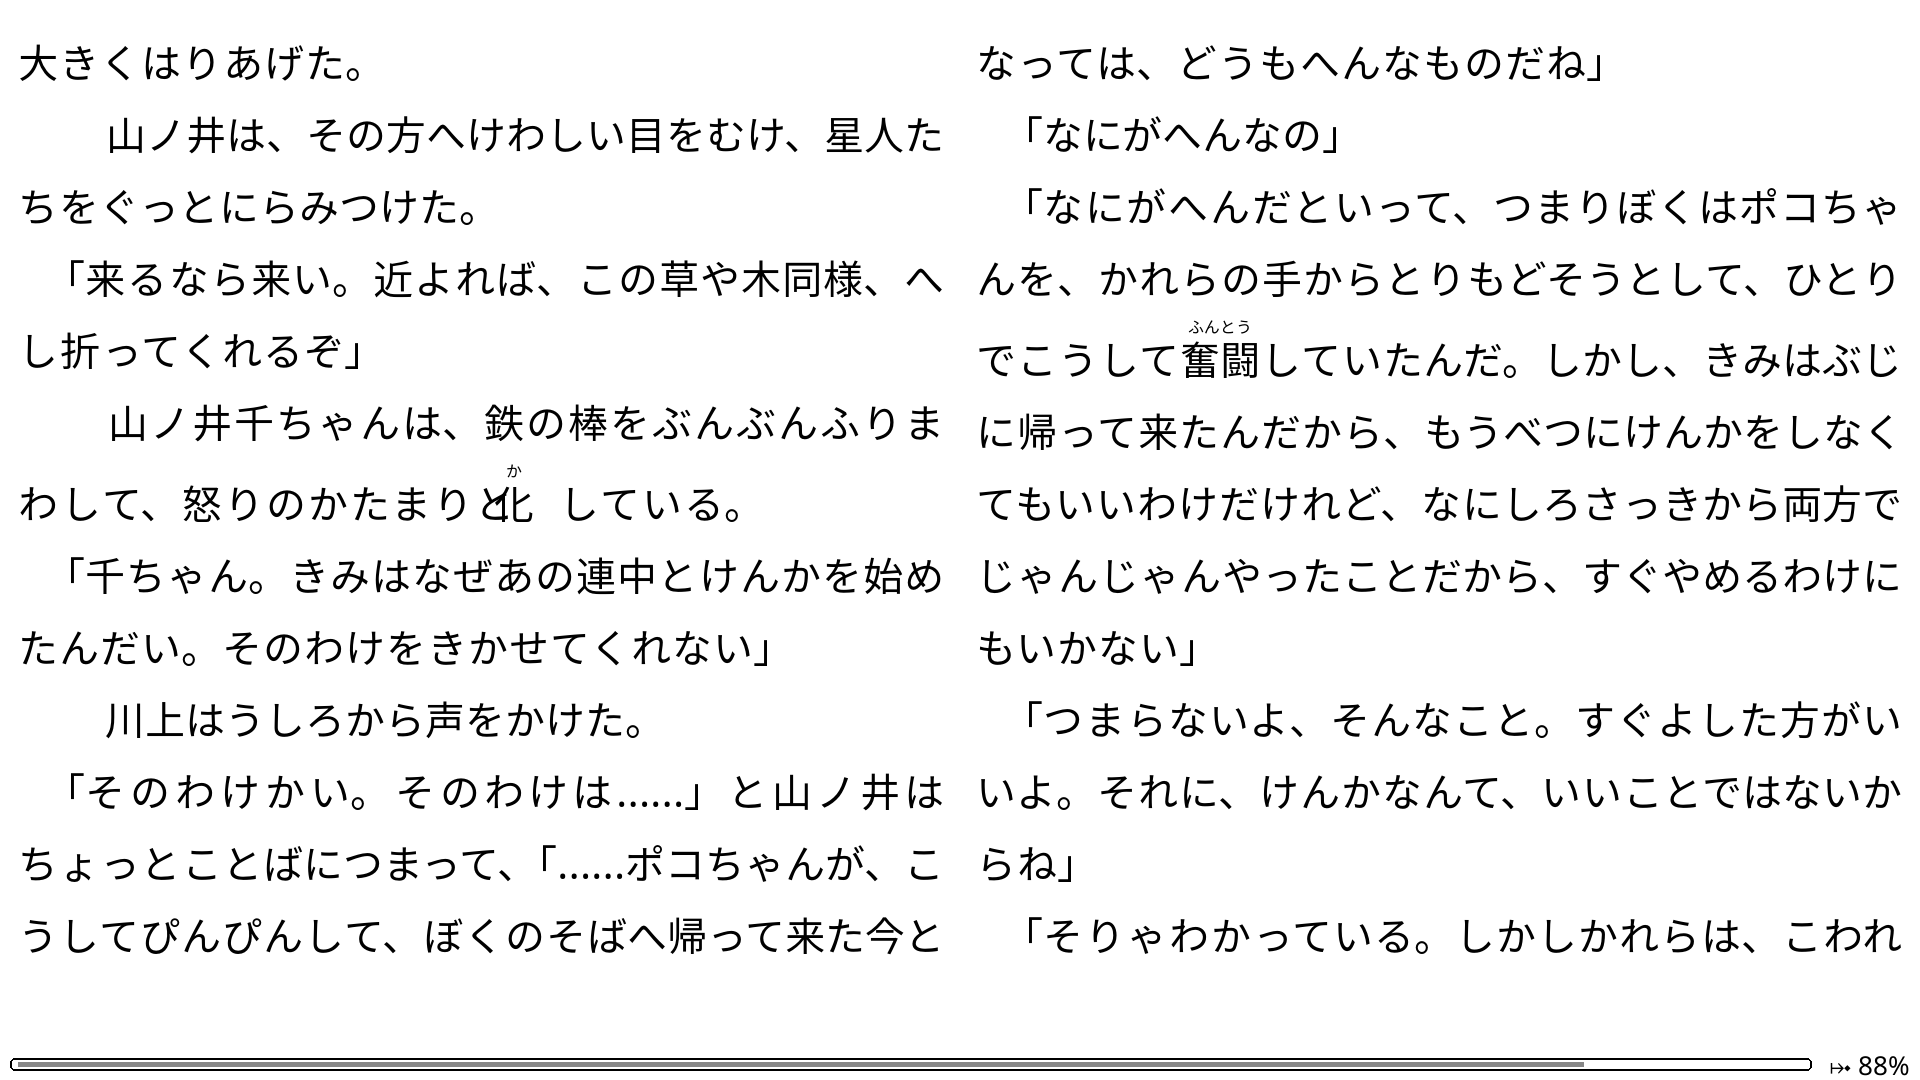 大きくはりあげた。
山ノ井は、その方へけわしい目をむけ、星人た
ちをぐっとにらみつけた。
「来るなら来い。近よれば、この草や木同様、へ
し折ってくれるぞ」
山ノ井千ちゃんは、鉄の棒をぶんぶんふりま
か
わして、怒りのかたまりと化している。
「千ちゃん。きみはなぜあの連中とけんかを始め
たんだい。そのわけをきかせてくれない」
川上はうしろから声をかけた。
「そのわけかい。そのわけは……」と山ノ井は
ちょっとことばにつまって、「……ポコちゃんが、こ
うしてぴんぴんして、ぼくのそばへ帰って来た今と
なっては、どうもへんなものだね」
「なにがへんなの」
「なにがへんだといって、つまりぼくはポコちゃ
んを、かれらの手からとりもどそうとして、ひとり
ふんとう
でこうして奮闘していたんだ。しかし、きみはぶじ
に帰って来たんだから、もうべつにけんかをしなく
てもいいわけだけれど、なにしろさっきから両方で
じゃんじゃんやったことだから、すぐやめるわけに
もいかない」
「つまらないよ、そんなこと。すぐよした方がい
いよ。それに、けんかなんて、いいことではないか
らね」
「そりゃわかっている。しかしかれらは、こわれ
88%